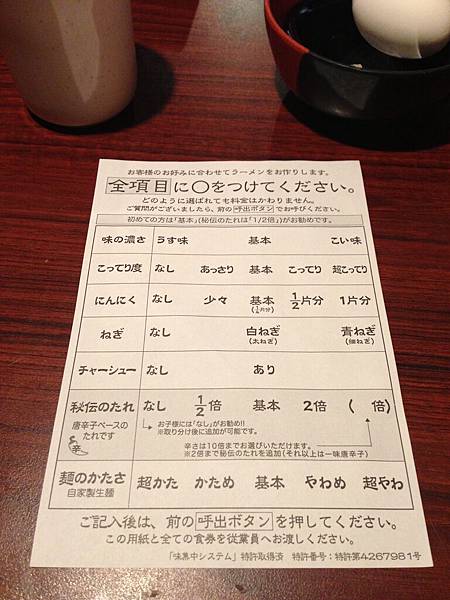 お客様のお好みに合わせてラーメンをお作りします。
全項目に〇をつけてください。
どのように選ばれても料金はかわりません。
ご質問がございましたら、前の 呼出ボタン でお呼びください。
初めての方は「基本」(秘伝のたれは「1/2倍」)がお勧めです。
味の濃さ うす味 基本 こい味
こってり度 なし あっさり 基本 こってり 超こってり
にんにく なし 少々 基本 1/2片分 1片分
(1/4片分)
ねぎ なし 白ねぎ 青ねぎ
(太ねぎ) (細ねぎ)
チャーシュー なし あり
秘伝のたれ なし 1/2倍 基本 2倍 ( 倍)
唐辛子ベースのたれです
辛
お子様には「なし」がお勧め!!
※取り分け後に追加が可能です。
辛さは10倍までお選びいただけます。
※2倍まで秘伝のたれを追加(それ以上は一味唐辛子)
麺のかたさ 超かた かため 基本 やわめ 超やわ
自家製生麺
ご記入後は、前の 呼出ボタン を押してください。
この用紙と全ての食券を従業員へお渡しください。
「味集中システム」特許取得済 特許番号:特許第4267981号